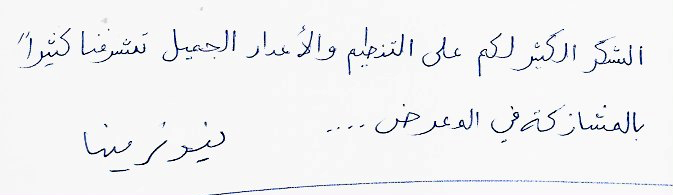 الشكر الكثير لكم على التنظيم والأعداد الجميل تشرفنا كثيراً
بالمشاركة في المعرض ....